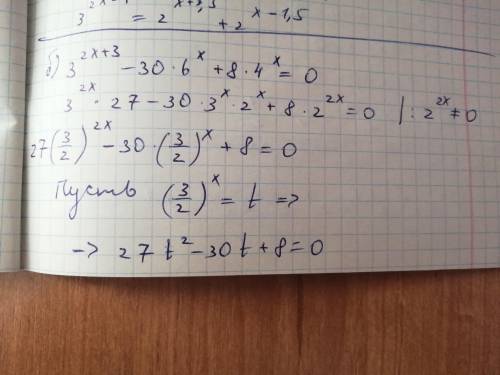 3^{2x-1} = 2^{x+3,5} + 2^{x-1,5}
б) 3^{2x+3} - 30 · 6^x + 8 · 4^x = 0
3^{2x} · 27 - 30 · 3^x · 2^x + 8 · 2^{2x} = 0 | : 2^{2x} ≠ 0
27(3/2)^{2x} - 30 · (3/2)^x + 8 = 0
Пусть (3/2)^x = t =>
-> 27t^2 - 30t + 8 = 0